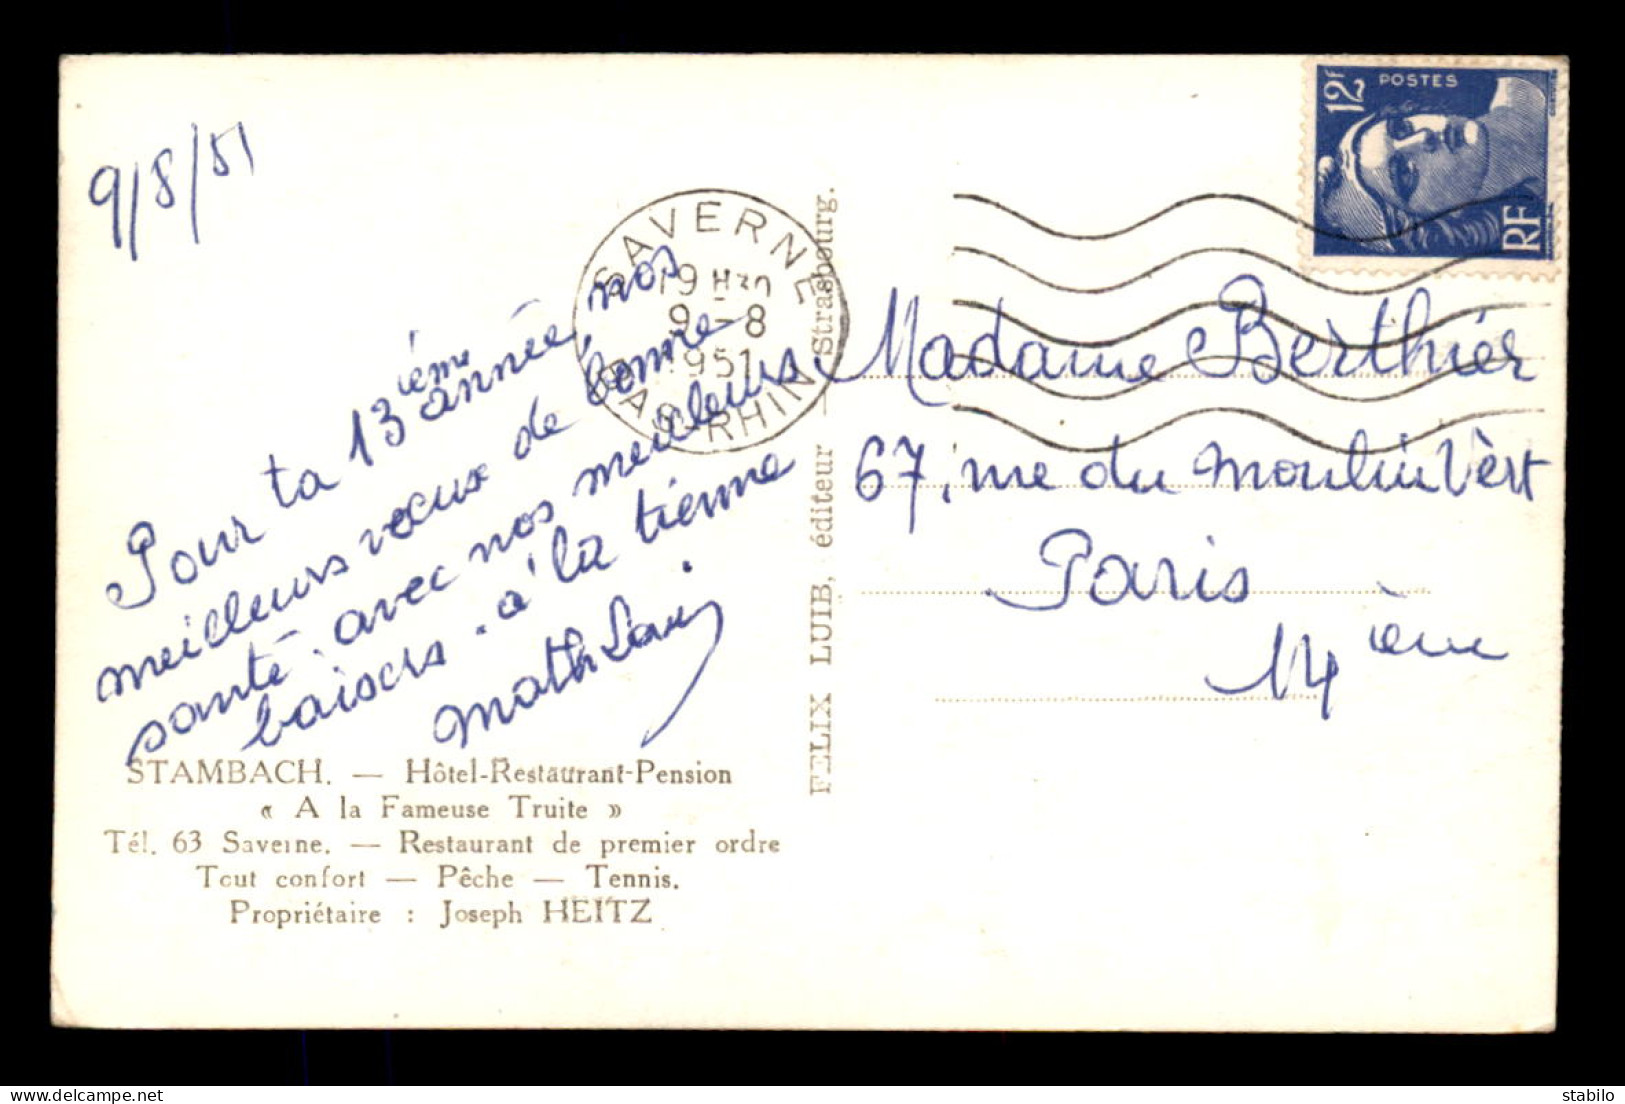 9/8/51
Pour ta 13ième année, nos
meilleurs vœux de bonne
santé. avec nos meilleurs
baisers. à la tienne
STAMBACH. — Hôtel-Restaurant-Pension
« A la Fameuse Truite »
Tél. 63 Saverne. — Restaurant de premier ordre
Tout confort — Pêche — Tennis.
Propriétaire : Joseph HEITZ
SAVERNE
19 H30
9 - 8
1951
BAS-RHIN
FELIX LUIB, éditeur — Strasbourg.
12F
POSTES
RF
Madame Berthier
67, rue du Moulin Vert
Paris
14ième
delcampe.net
stalbe